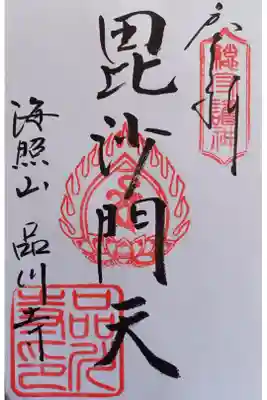 毘沙門天
海照山 品川寺
品川寺印